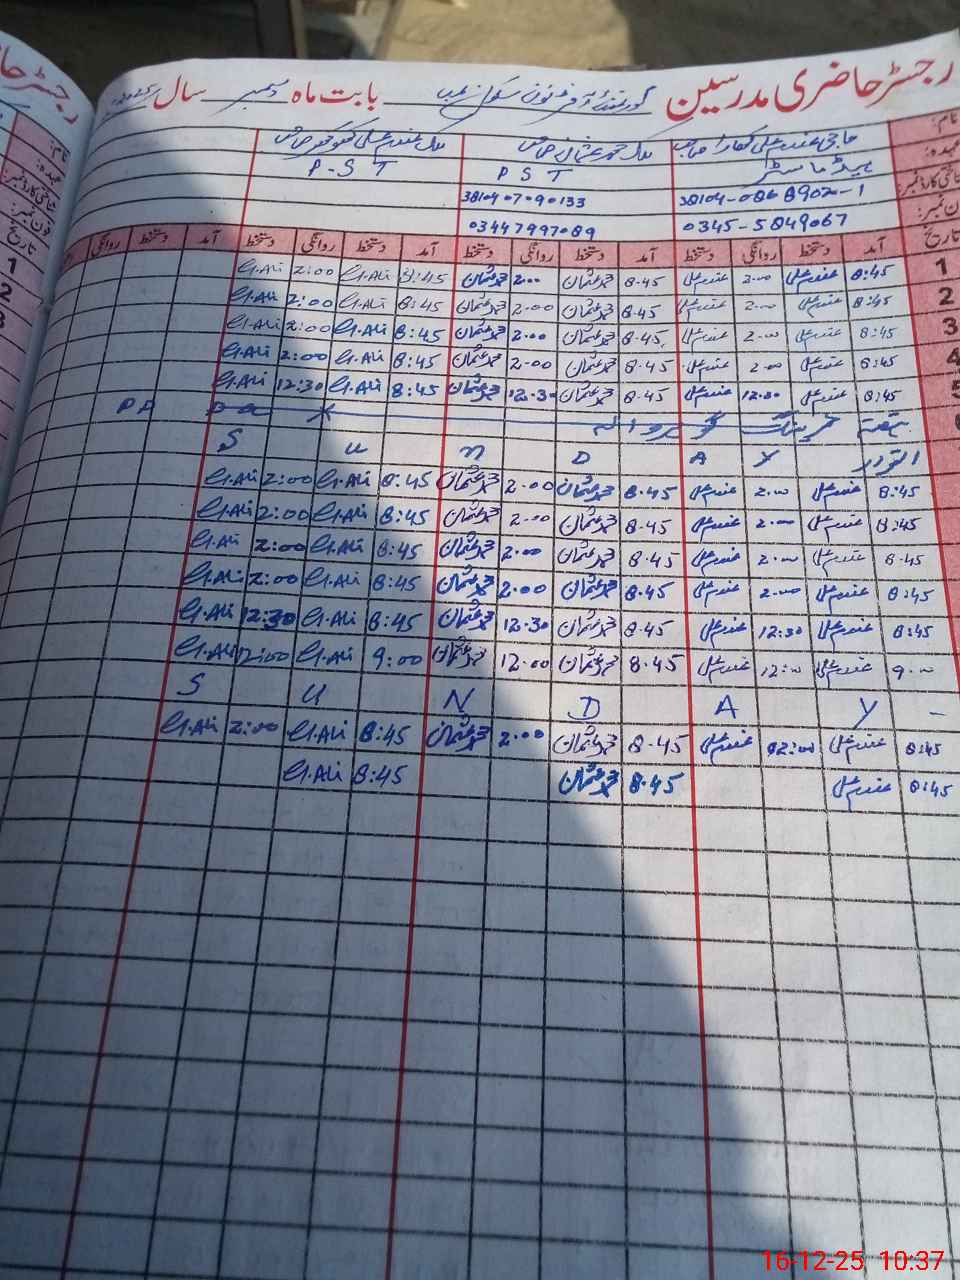 رجسٹر حاضری مدرسین گورنمنٹ سکول بابت ماہ دسمبر سال
نام:
عہدہ: ہیڈ ماسٹر P S T P-S T
شناختی کارڈ نمبر: 38104-0868902-1 38104 07090133
فون نمبر: 0345-5849067 03447997089
تاریخ آمد دستخط روانگی دستخط آمد دستخط روانگی دستخط آمد دستخط روانگی دستخط آمد دستخط روانگی
1 8:45 غلام علی 2:00 غلام علی 8.45 محمد عثمان 2.00 محمد عثمان 8:45 G.Ali 2:00 G.Ali
2 8:45 غلام علی 2.00 غلام علی 8.45 محمد عثمان 2.00 محمد عثمان 8:45 G.Ali 2:00 G.Ali
3 8:45 غلام علی 2.00 غلام علی 8.45 محمد عثمان 2.00 محمد عثمان 8:45 G.Ali 2:00 G.Ali
4 8:45 غلام علی 2.00 غلام علی 8.45 محمد عثمان 2.00 محمد عثمان 8:45 G.Ali 2:00 G.Ali
5 8:45 غلام علی 12.30 غلام علی 8.45 محمد عثمان 12.30 محمد عثمان 8:45 G.Ali 12:30 G.Ali
6 ہفتہ
اتوار S u n D A Y
8:45 غلام علی 2.00 غلام علی 8.45 محمد عثمان 2.00 محمد عثمان 8:45 G.Ali 2:00 G.Ali
8:45 غلام علی 2.00 غلام علی 8.45 محمد عثمان 2.00 محمد عثمان 8:45 G.Ali 2:00 G.Ali
8.45 غلام علی 2.00 غلام علی 8.45 محمد عثمان 2.00 محمد عثمان 8:45 G.Ali 2:00 G.Ali
8:45 غلام علی 2.00 غلام علی 8.45 محمد عثمان 2.00 محمد عثمان 8:45 G.Ali 2:00 G.Ali
8:45 غلام علی 12:30 غلام علی 8.45 محمد عثمان 12.30 محمد عثمان 8:45 G.Ali 12:30 G.Ali
9.00 غلام علی 12:00 غلام علی 8.45 محمد عثمان 12.00 محمد عثمان 9:00 G.Ali 12:00 G.Ali
S U N D A Y -
8:45 غلام علی 02:00 غلام علی 8.45 محمد عثمان 2.00 محمد عثمان 8:45 G.Ali 2:00 G.Ali
8:45 غلام علی 8.45 محمد عثمان 8:45 G.Ali
16-12-25 10:37